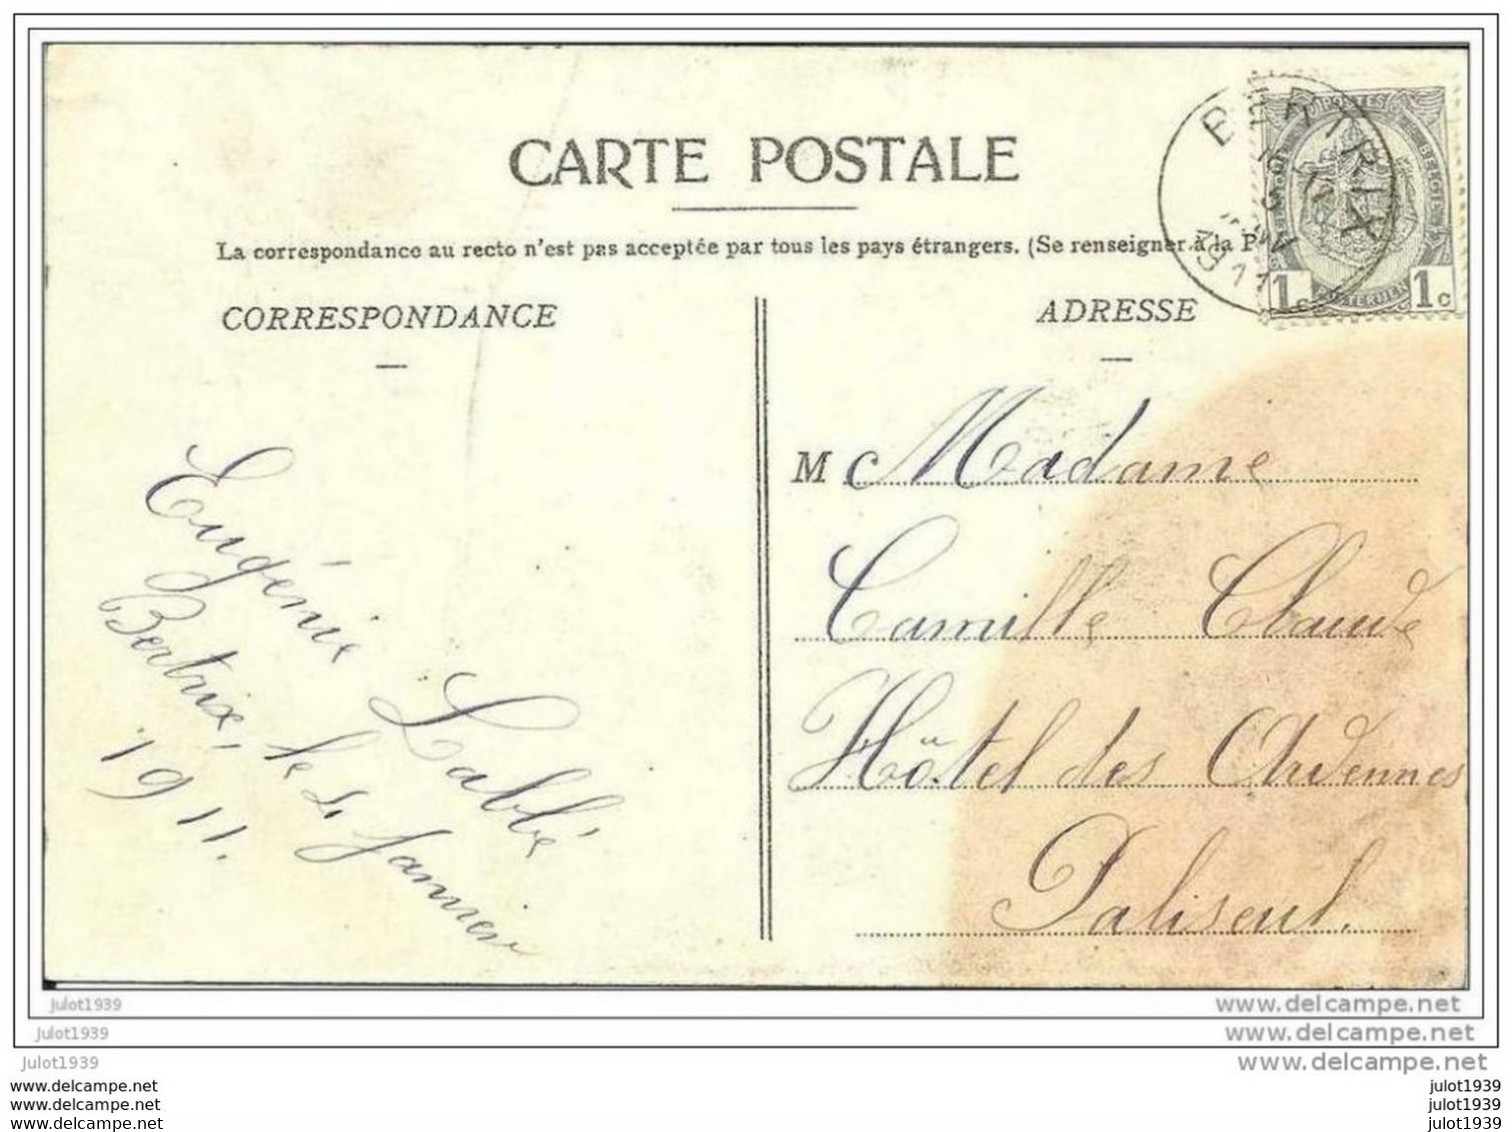 CARTE POSTALE
La correspondance au recto n'est pas acceptée par tous les pays étrangers. (Se renseigner à la P
CORRESPONDANCE
ADRESSE
BERTRIX
1911
POSTES
BELGIQUE
POSTERIJEN
1c 1c
M Madame
Camille Claude
Hôtel des Ardennes
Paliseul.
Eugénie Labbé
Bertrix, le 4 Janvier
1911.
julot1939
www.delcampe.net
julot1939
www.delcampe.net
julot1939
www.delcampe.net
www.delcampe.net
julot1939
www.delcampe.net
julot1939
www.delcampe.net
julot1939